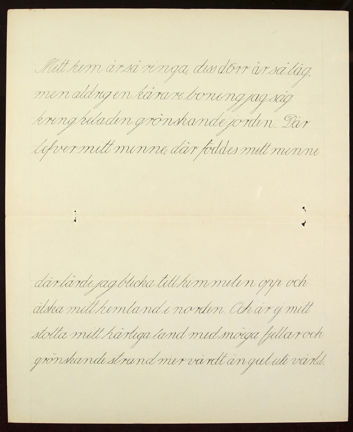 Mitt hem är så ringa, dess dörr är så låg,
men aldrig en kärare boning jag såg
kring hela den grönskande jorden. Där
lefver mitt minne, där föddes mitt minne
där lärde jag blicka till himmelen opp och
älska mitt hemland i norden. Och är ej mitt
stolta mitt härliga land med snöiga fjellar och
grönskande strand mer värdt än gul i värld.